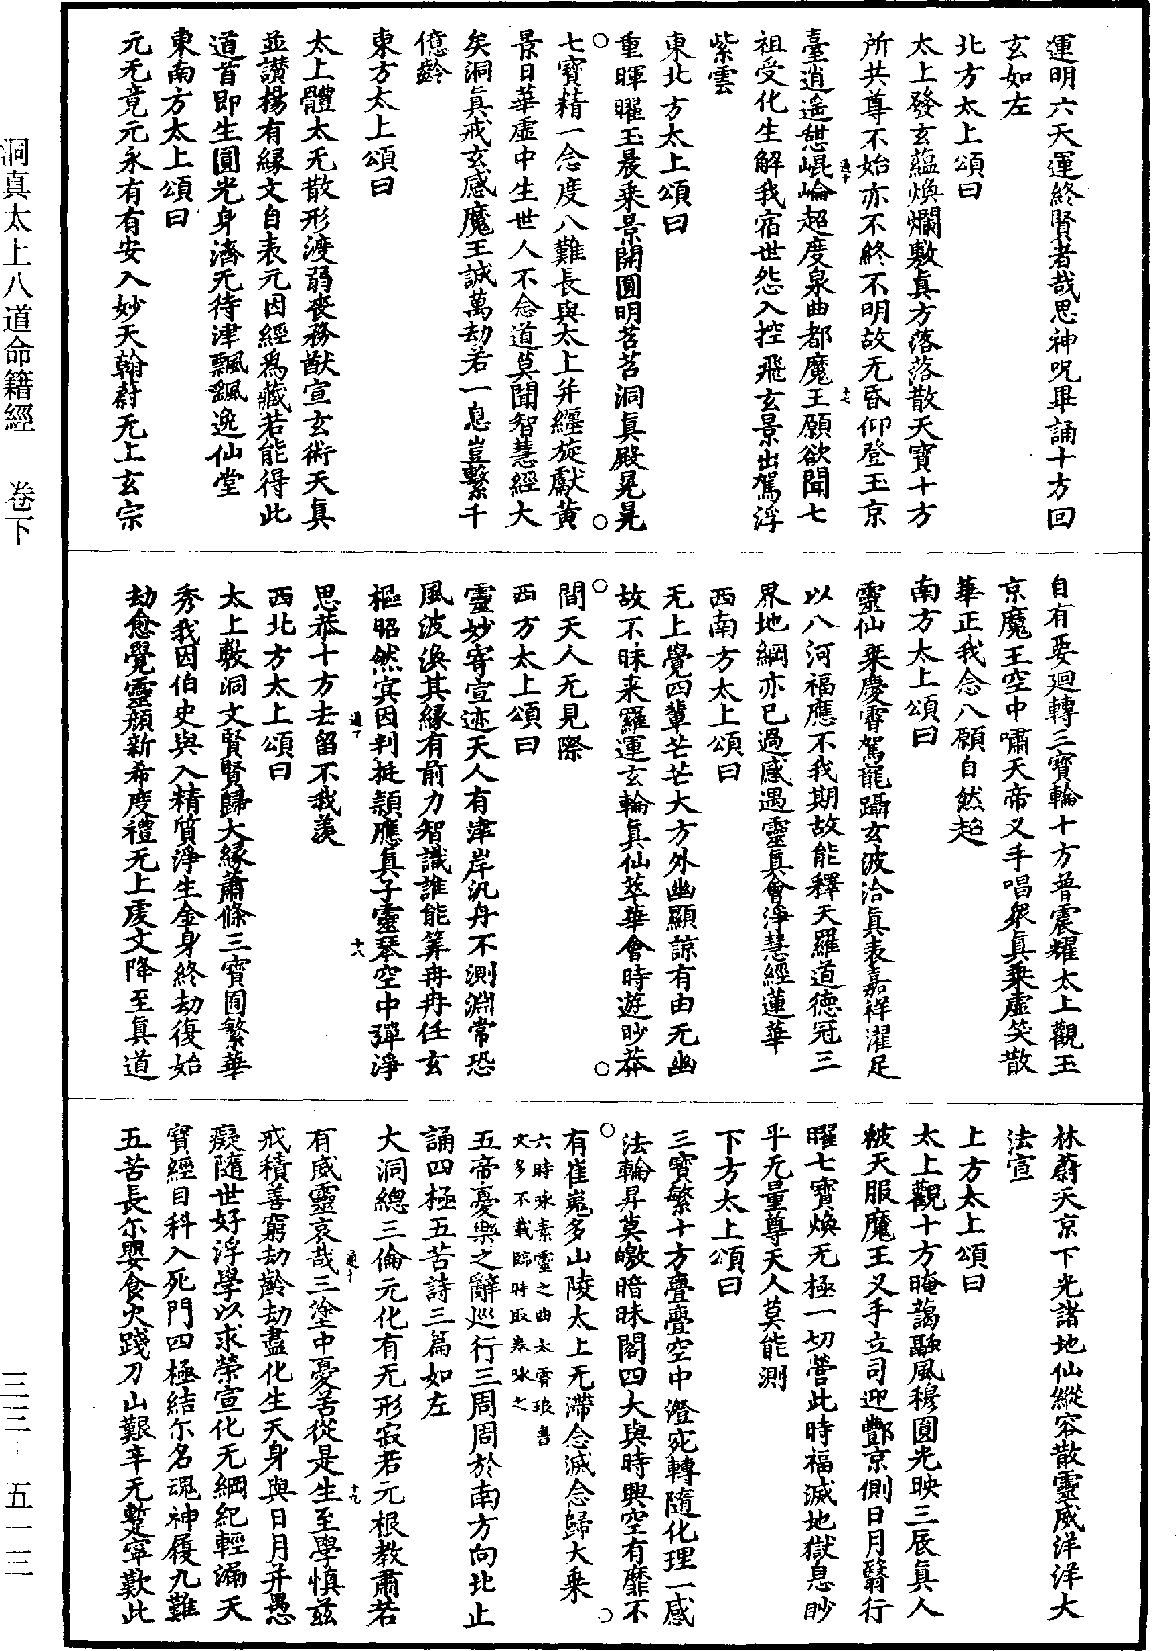 運明六天運終賢者哉思神呪畢誦十方回
玄如左
北方太上頌曰
太上發玄蘊煥爛敷真方落落散天寶十方
所共尊不始亦不終不明故无昏仰登玉京
臺逍遙憇崐崘超度泉曲都魔王願欲聞七
祖受化生解我宿世怨入控飛玄景出駕浮
紫雲
東北方太上頌曰
重暉曜玉晨乗景開圓明苕苕洞真殿晃晃
七寶精一念度八難長與太上并纒旋獻黄
景日華虛中生世人不念道莫聞智慧經大
矣洞真戒玄感魔王誠萬劫若一息豈繫千
億齡
東方太上頌曰
太上體太无散形渡弱喪務猷宣玄術天真
並讃揚有縁文自表元因經為藏若能得此
道首即生圓光身濟无待津飄飄逸仙堂
東南方太上頌曰
元无竟元永有有安入妙天翰蔚无上玄宗
自有要迴轉三寶輪十方普震耀太上觀玉
京魔王空中嘯天帝义手唱衆真乗虛笑散
華正我念八願自然超
南方太上頌曰
靈仙乗慶霄駕龍躡玄波洽真表嘉祥濯足
以八河福應不我期故能釋天羅道德冠三
界地網亦已過感遇靈真會淨慧經蓮華
西南方太上頌曰
无上覺四輩芒芒大方外幽顯諒有由无幽
故不昧来羅運玄輪真仙萃華會時遊眇莽
間天人无見際
西方太上頌曰
靈妙寄宣迹天人有津岸汎舟不測淵常恐
風波渙其縁有前力智識誰能筭冉冉任玄
樞昭然㝠因判挺頴應真子靈琴空中彈淨
思恭十方去留不我羡
西北方太上頌曰
太上敷洞文賢賢歸大縁蕭條三寶囿繁華
秀我因伯史與入精質淨生金身終劫復始
劫愈覺靈顔新希度禮无上虔文降至真道
林蔚天京下光諸地仙縱容散靈威洋洋大
法宣
上方太上頌曰
太上觀十方晻藹融風穆圓光映三辰真人
被天服魔王义手立司迎酆京側日月翳行
曜七寶煥无極一切營此時福滅地獄息眇
乎无量尊天人莫能測
下方太上頌曰
三寶繁十方疊疊空中澄宛轉隨化理一感
法輪昇莫曒暗昧閣四大與時興空有靡不
有崔嵬多山陵太上无滯念滅念歸大乗
六時咏素靈之曲太霄琅書
文多不載臨時取来咏之
五帝憂樂之辭巡行三周周於南方向北止
誦四極五苦詩三篇如左
大洞總三倫元化有无形寂若元根教肅若
有威靈哀哉三塗中憂苦從是生至學慎兹
戒積善窮劫齡劫盡化生天身與日月并愚
癡隨世好浮學以求榮宣化无綱紀輕漏天
寳經目科入死門四極結尓名魂神履九難
五苦長尓嬰食火踐刀山艱辛无蹔寧歎此
洞真太上八道命籍經　卷下
三三・五一三